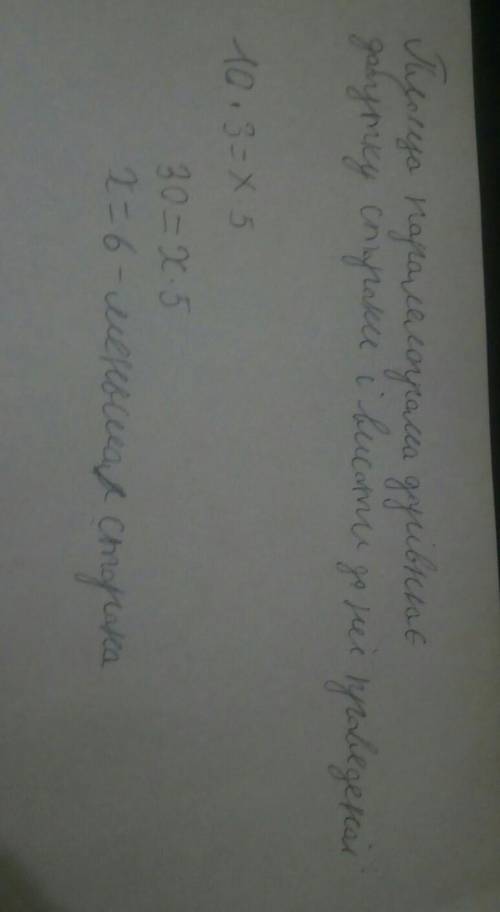 Площа паралелограма дорівнює
добутку сторони і висоти до неї проведеної
10 · 3 = x 5
30 = x · 5
x = 6 - меньшая сторона